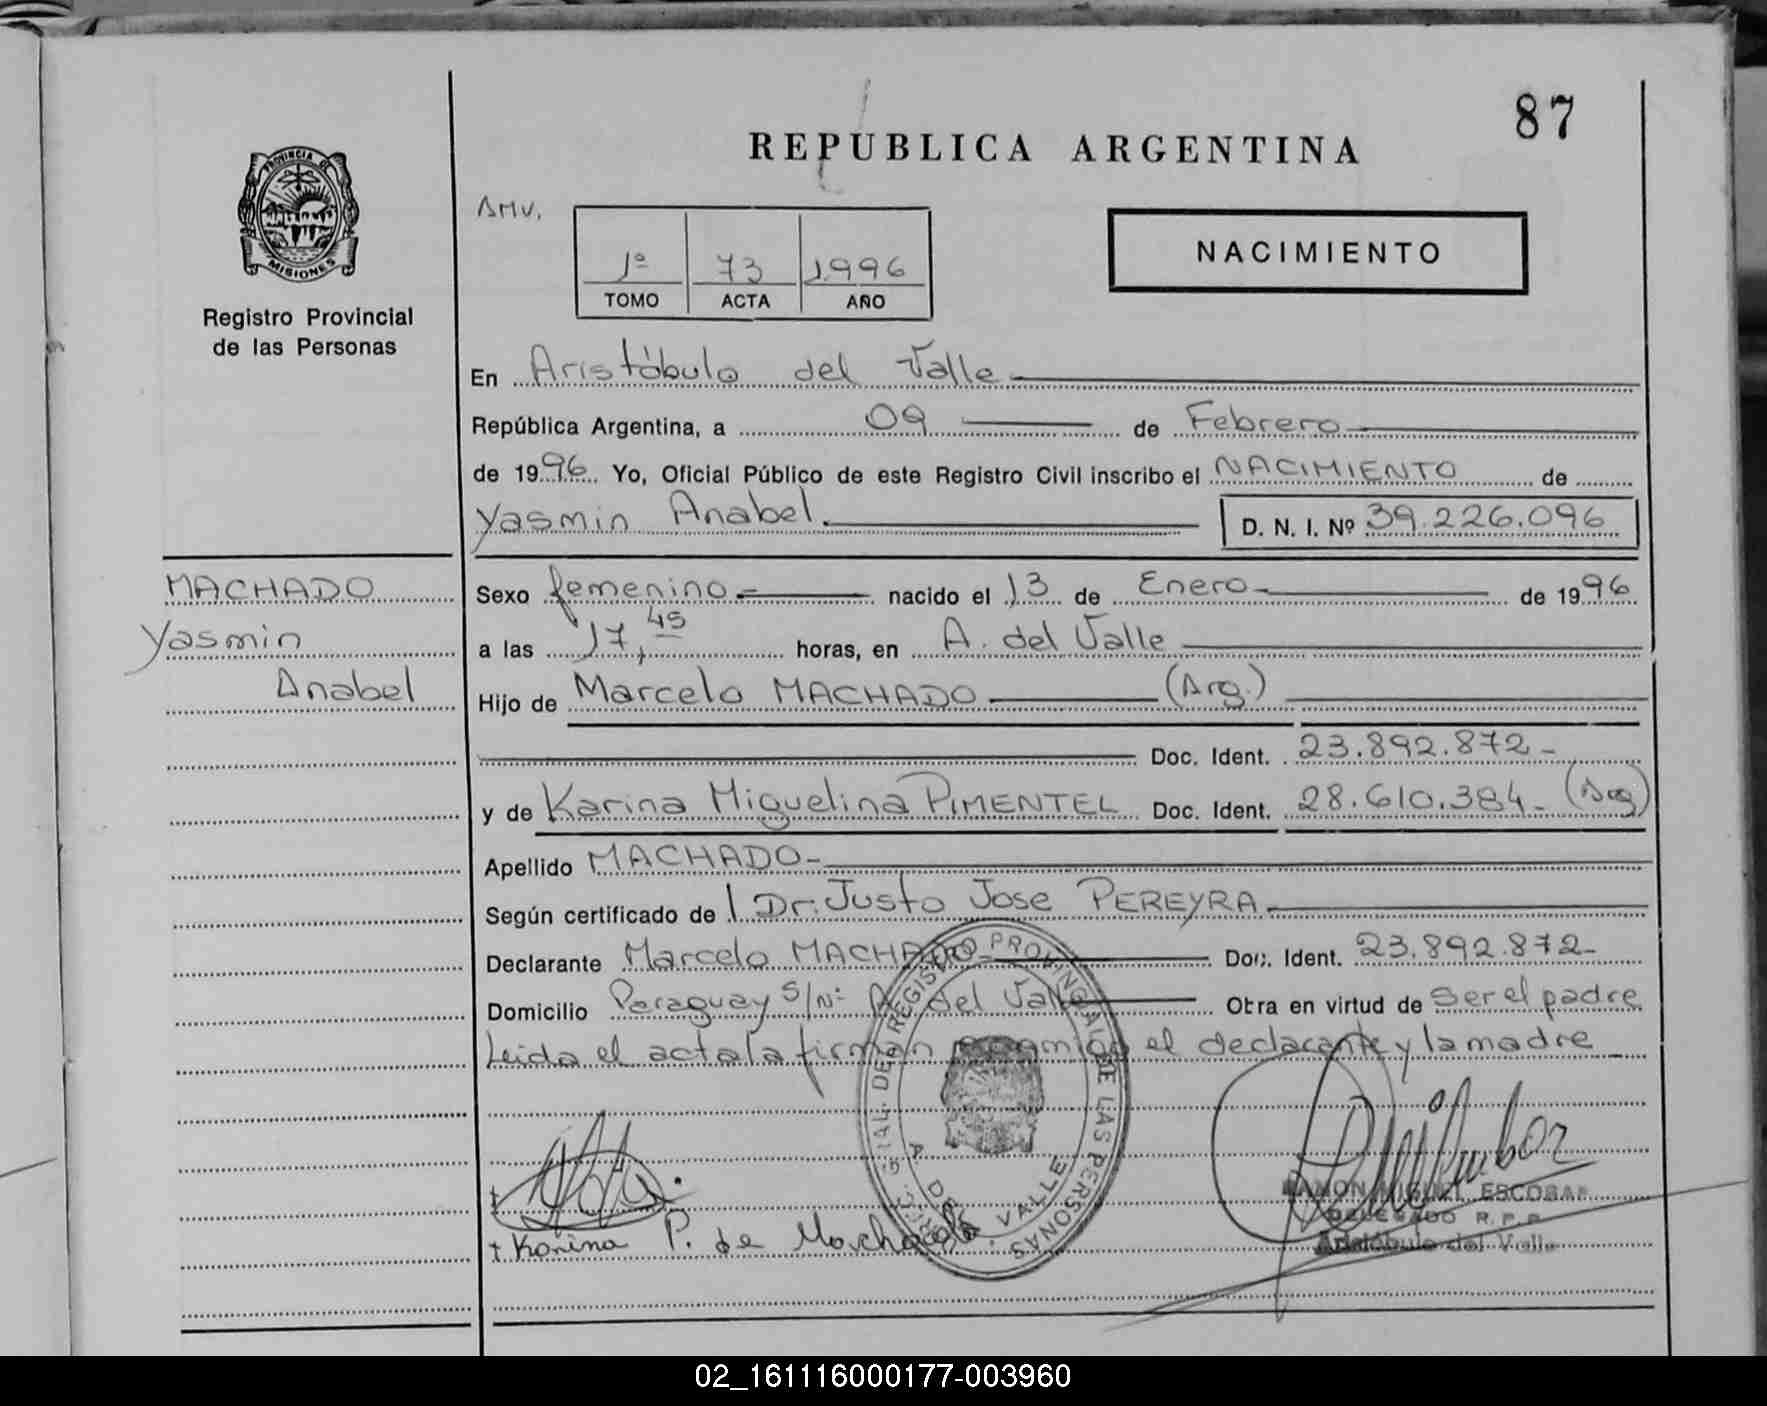 87
REPUBLICA ARGENTINA
PROVINCIA DE
MISIONES
Registro Provincial
de las Personas
1º 73 1996
TOMO ACTA AÑO
NACIMIENTO
En Aristóbulo del Valle
República Argentina, a 09 de Febrero
de 1996 Yo, Oficial Público de este Registro Civil inscribo el NACIMIENTO de
Yasmin Anabel. D. N. I. Nº 39.226.096
MACHADO
Yasmin
Anabel
Sexo femenino nacido el 13 de Enero de 1996
a las 17,45 horas, en A. del Valle
Hijo de Marcelo MACHADO (Arg.)
Doc. Ident. 23.892.872
y de Karina Miguelina PIMENTEL Doc. Ident. 28.610.384 (Arg)
Apellido MACHADO
Según certificado de Dr. Justo Jose PEREYRA
Declarante Marcelo MACHADO Doc. Ident. 23.892.872
Domicilio Paraguay S/Nº A. del Valle Otra en virtud de Ser el padre
Leida el acta la firman conmigo el declarante y la madre
REGISTRO PROVINCIAL DE LAS PERSONAS
VALLE
Karina P. de Machado
RAMON MIGUEL ESCOBAR
DELEGADO R.P.P.
Aristóbulo del Valle
02_161116000177-003960